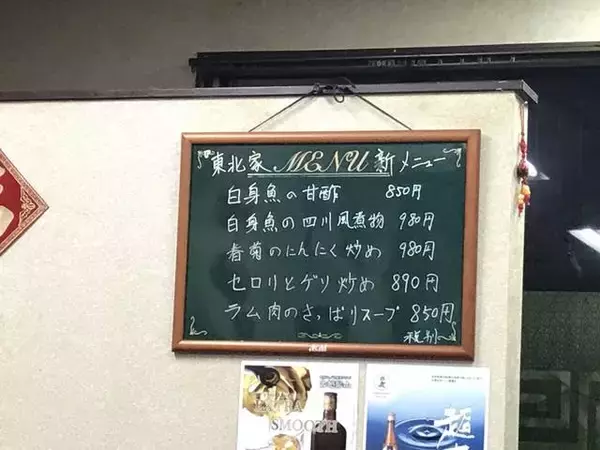 東北家 MENU 新メニュー
白身魚の甘酢 850円
白身魚の四川風煮物 980円
春菊のにんにく炒め 980円
セロリとゲソ炒め 890円
ラム肉のさっぱりスープ 850円
税別
EXTRA
SMOOTH